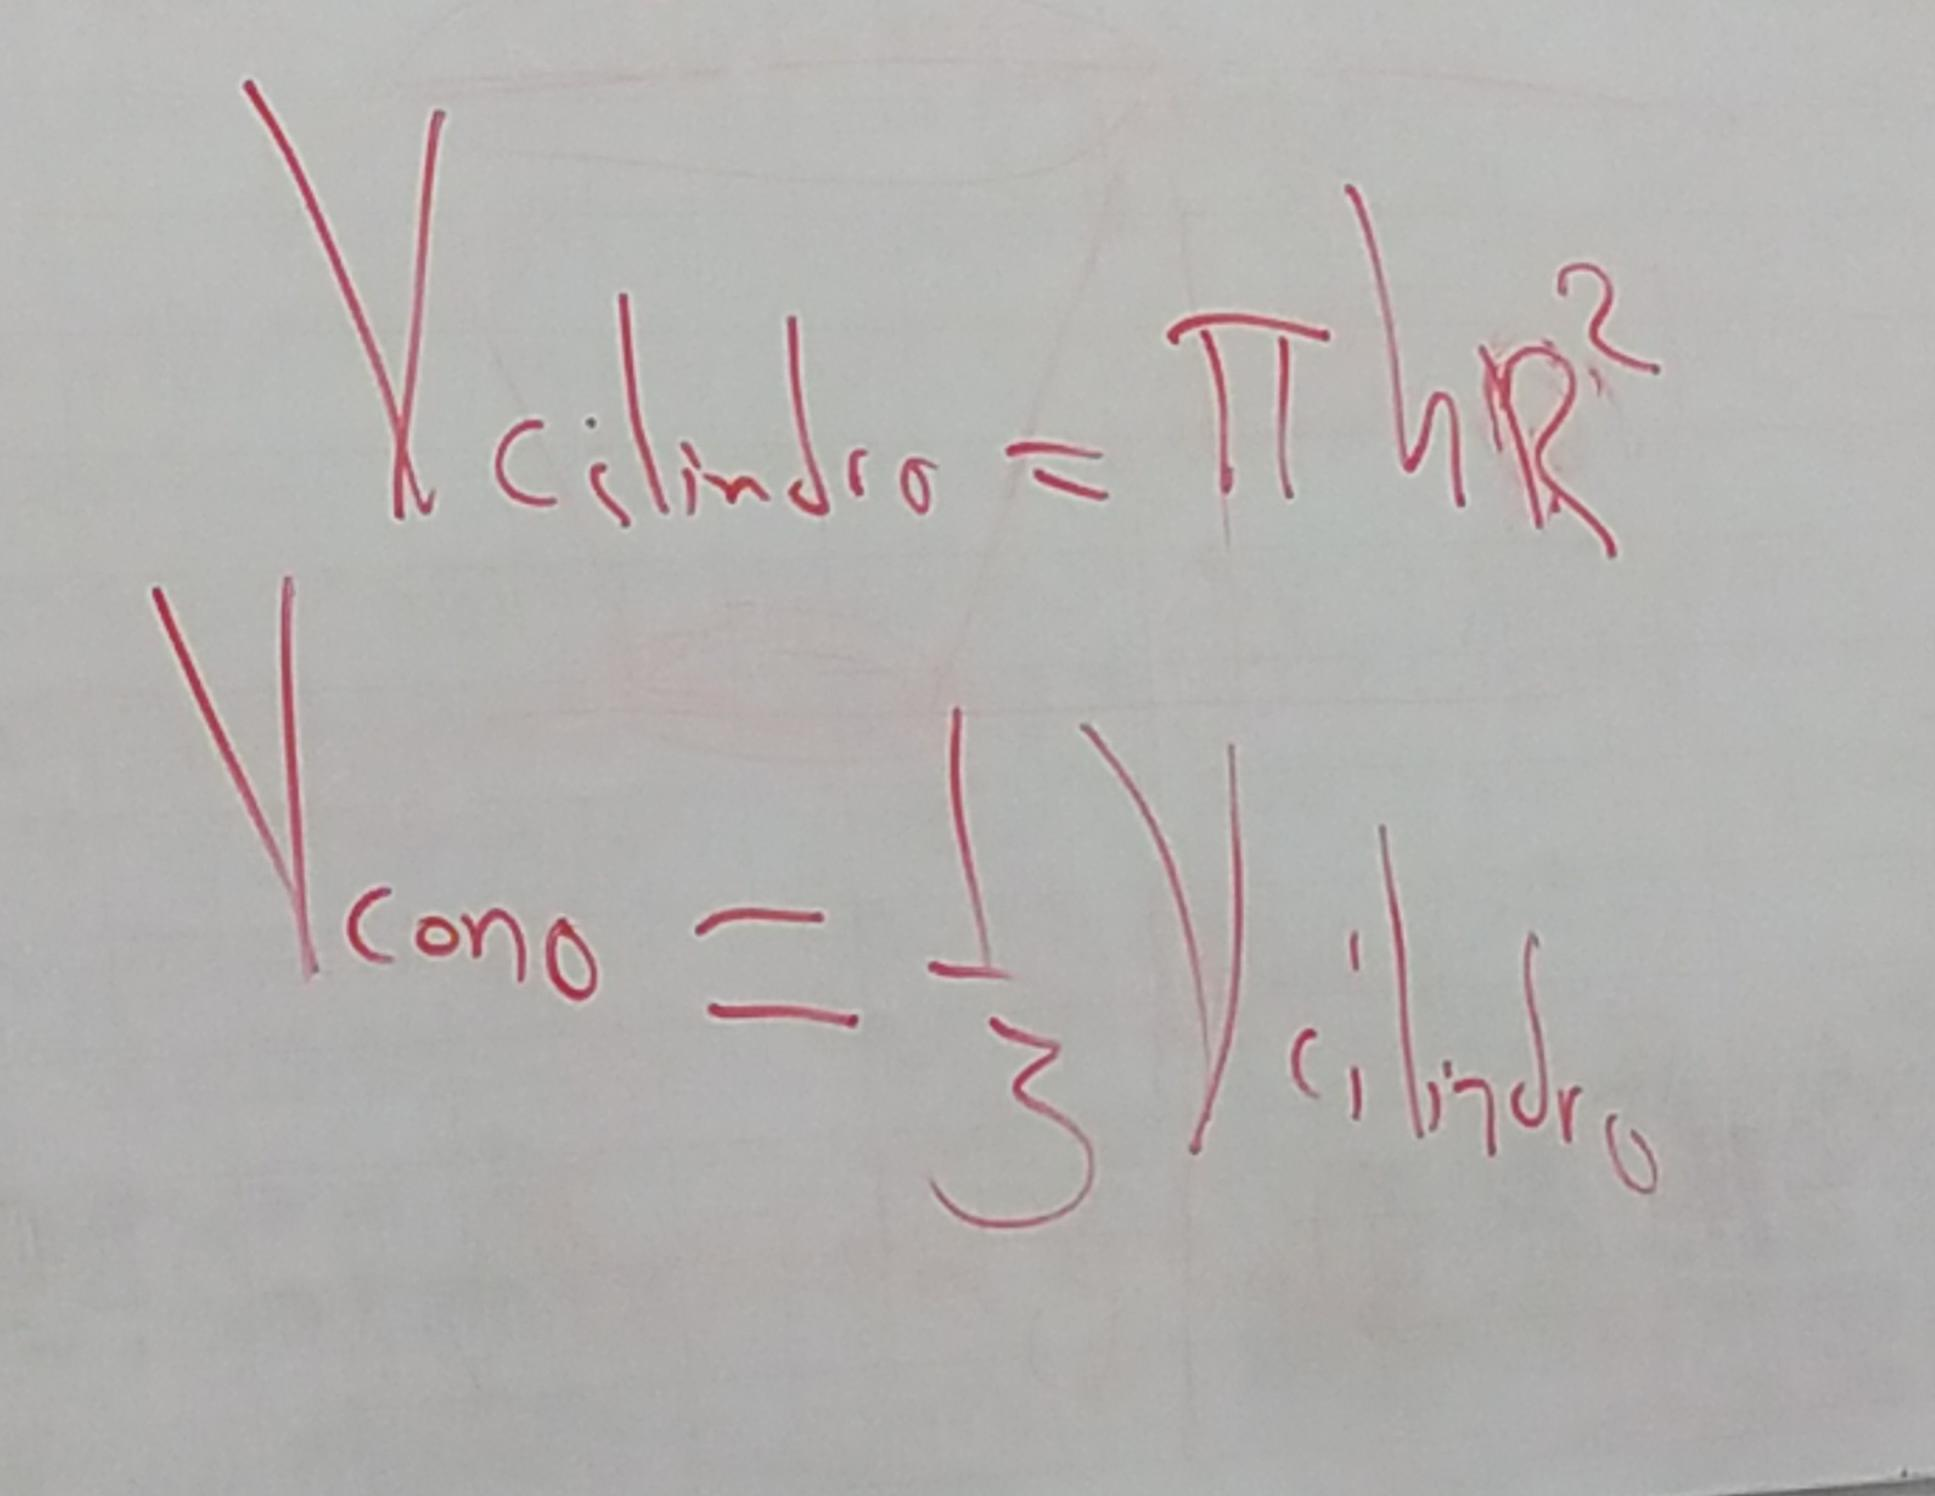 V cilindro = π h R²
V cono = 1/3 V cilindro